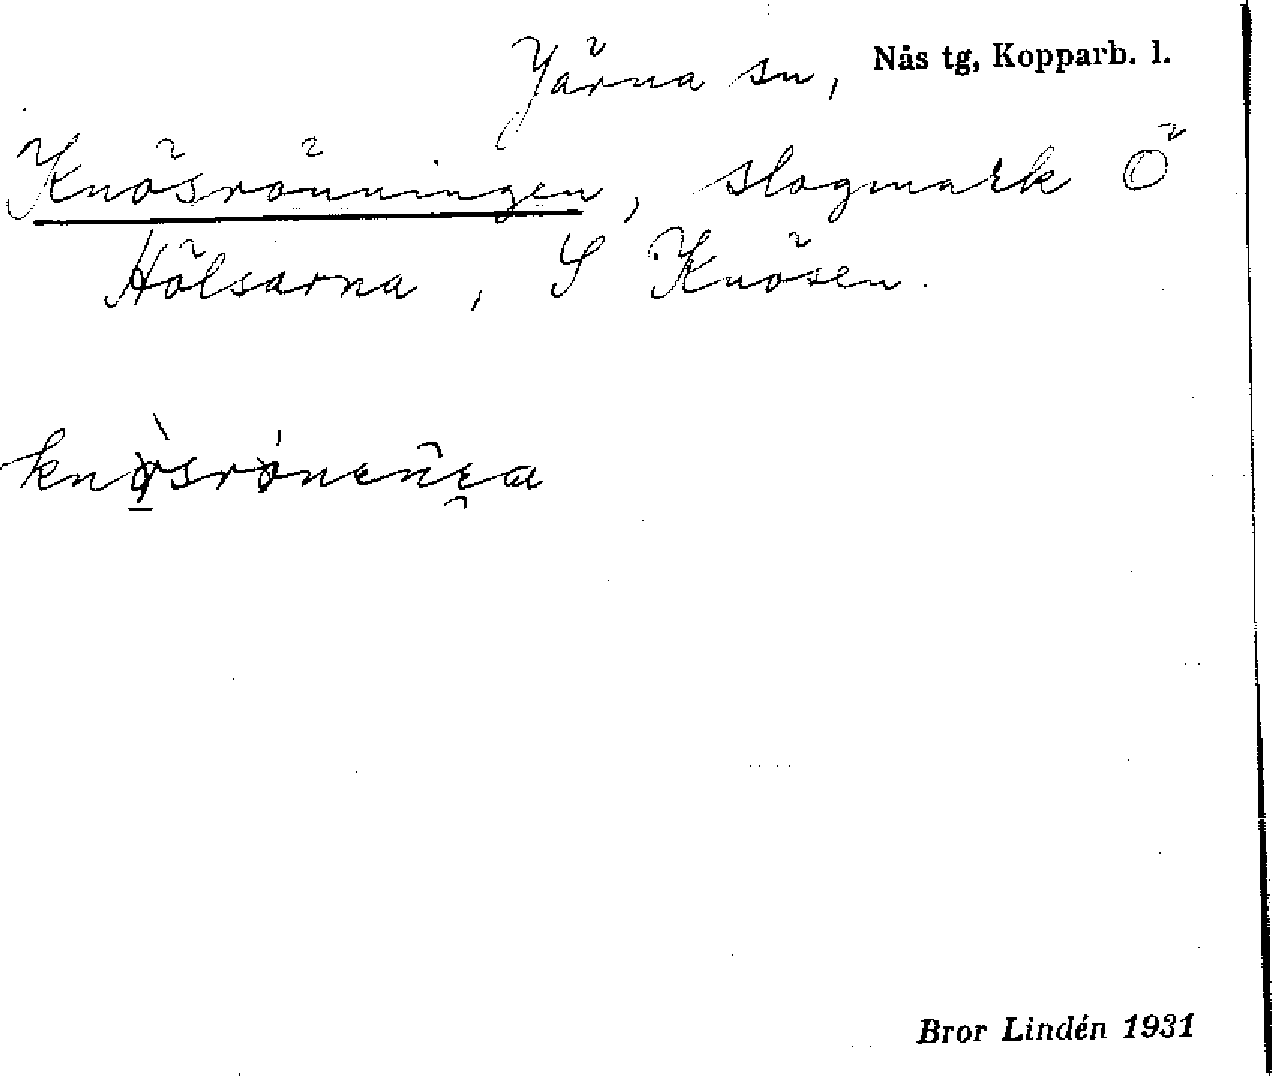 Järna sn, Nås tg, Kopparb. l.
Knösrönningen, slogmark Ö
Hölsarna, S Knösen.
Bror Lindén 1931